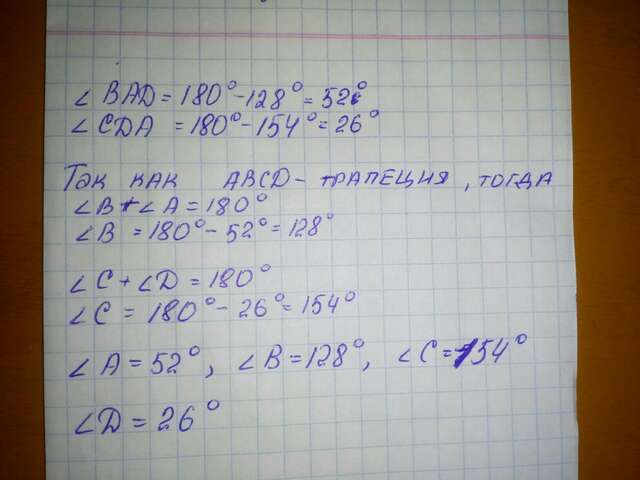 ∠BAD = 180° - 128° = 52°
∠CDA = 180° - 154° = 26°
Так как ABCD - трапеция, тогда
∠B + ∠A = 180°
∠B = 180° - 52° = 128°
∠C + ∠D = 180°
∠C = 180° - 26° = 154°
∠A = 52°, ∠B = 128°, ∠C = 154°
∠D = 26°